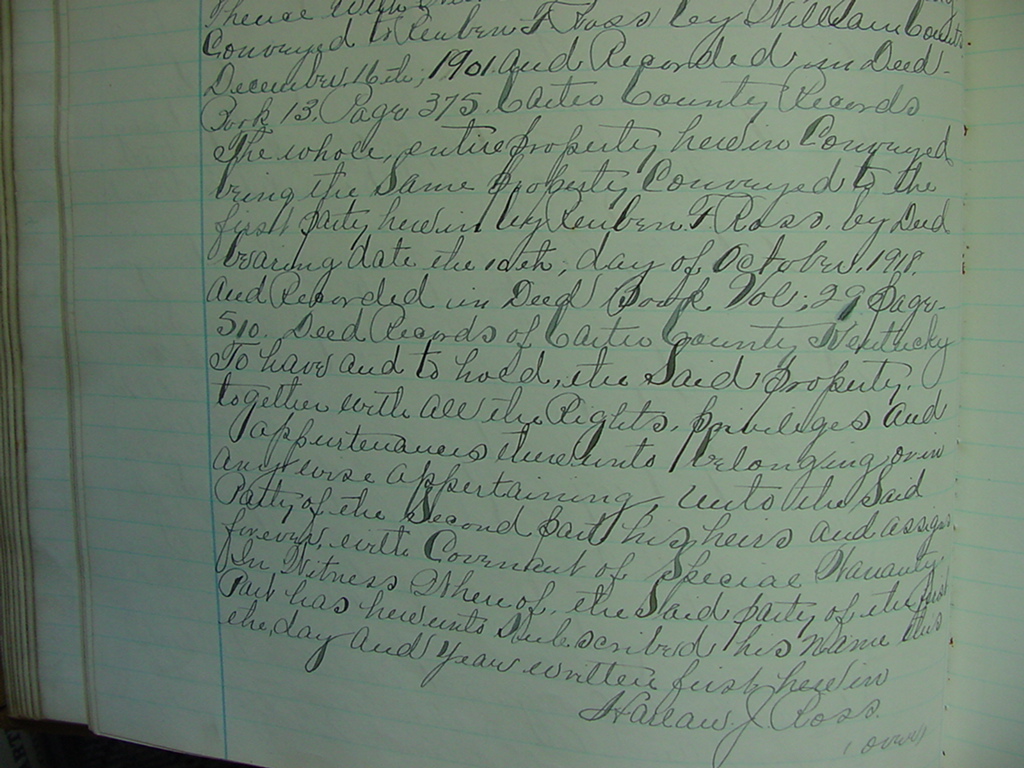 Thence With
Conveyed to Reuben T. Ross by William
December 16th, 1901 and Recorded in Deed-
Book 13. Page 375. Carter County Records
The whole, entire property herein Conveyed
being the Same Property Conveyed to the
first party herein by Reuben T. Ross. by Deed
bearing date the 10th, day of October, 1918.
and Recorded in Deed Book Vol; 29 page-
510. Deed Records of Carter County Kentucky
To have and to hold, the Said property,
together with all the Rights, privileges and
appurtenances thereunto belonging or in
any wise appertaining, unto the Said
Party of the Second part his heirs and assigns
forever, with Covenant of Special Warranty
In Witness Whereof, the Said party of the first
Part has hereunto Subscribed his Name this
the, day and year written first herein
Harlan. J. Ross.
(over)